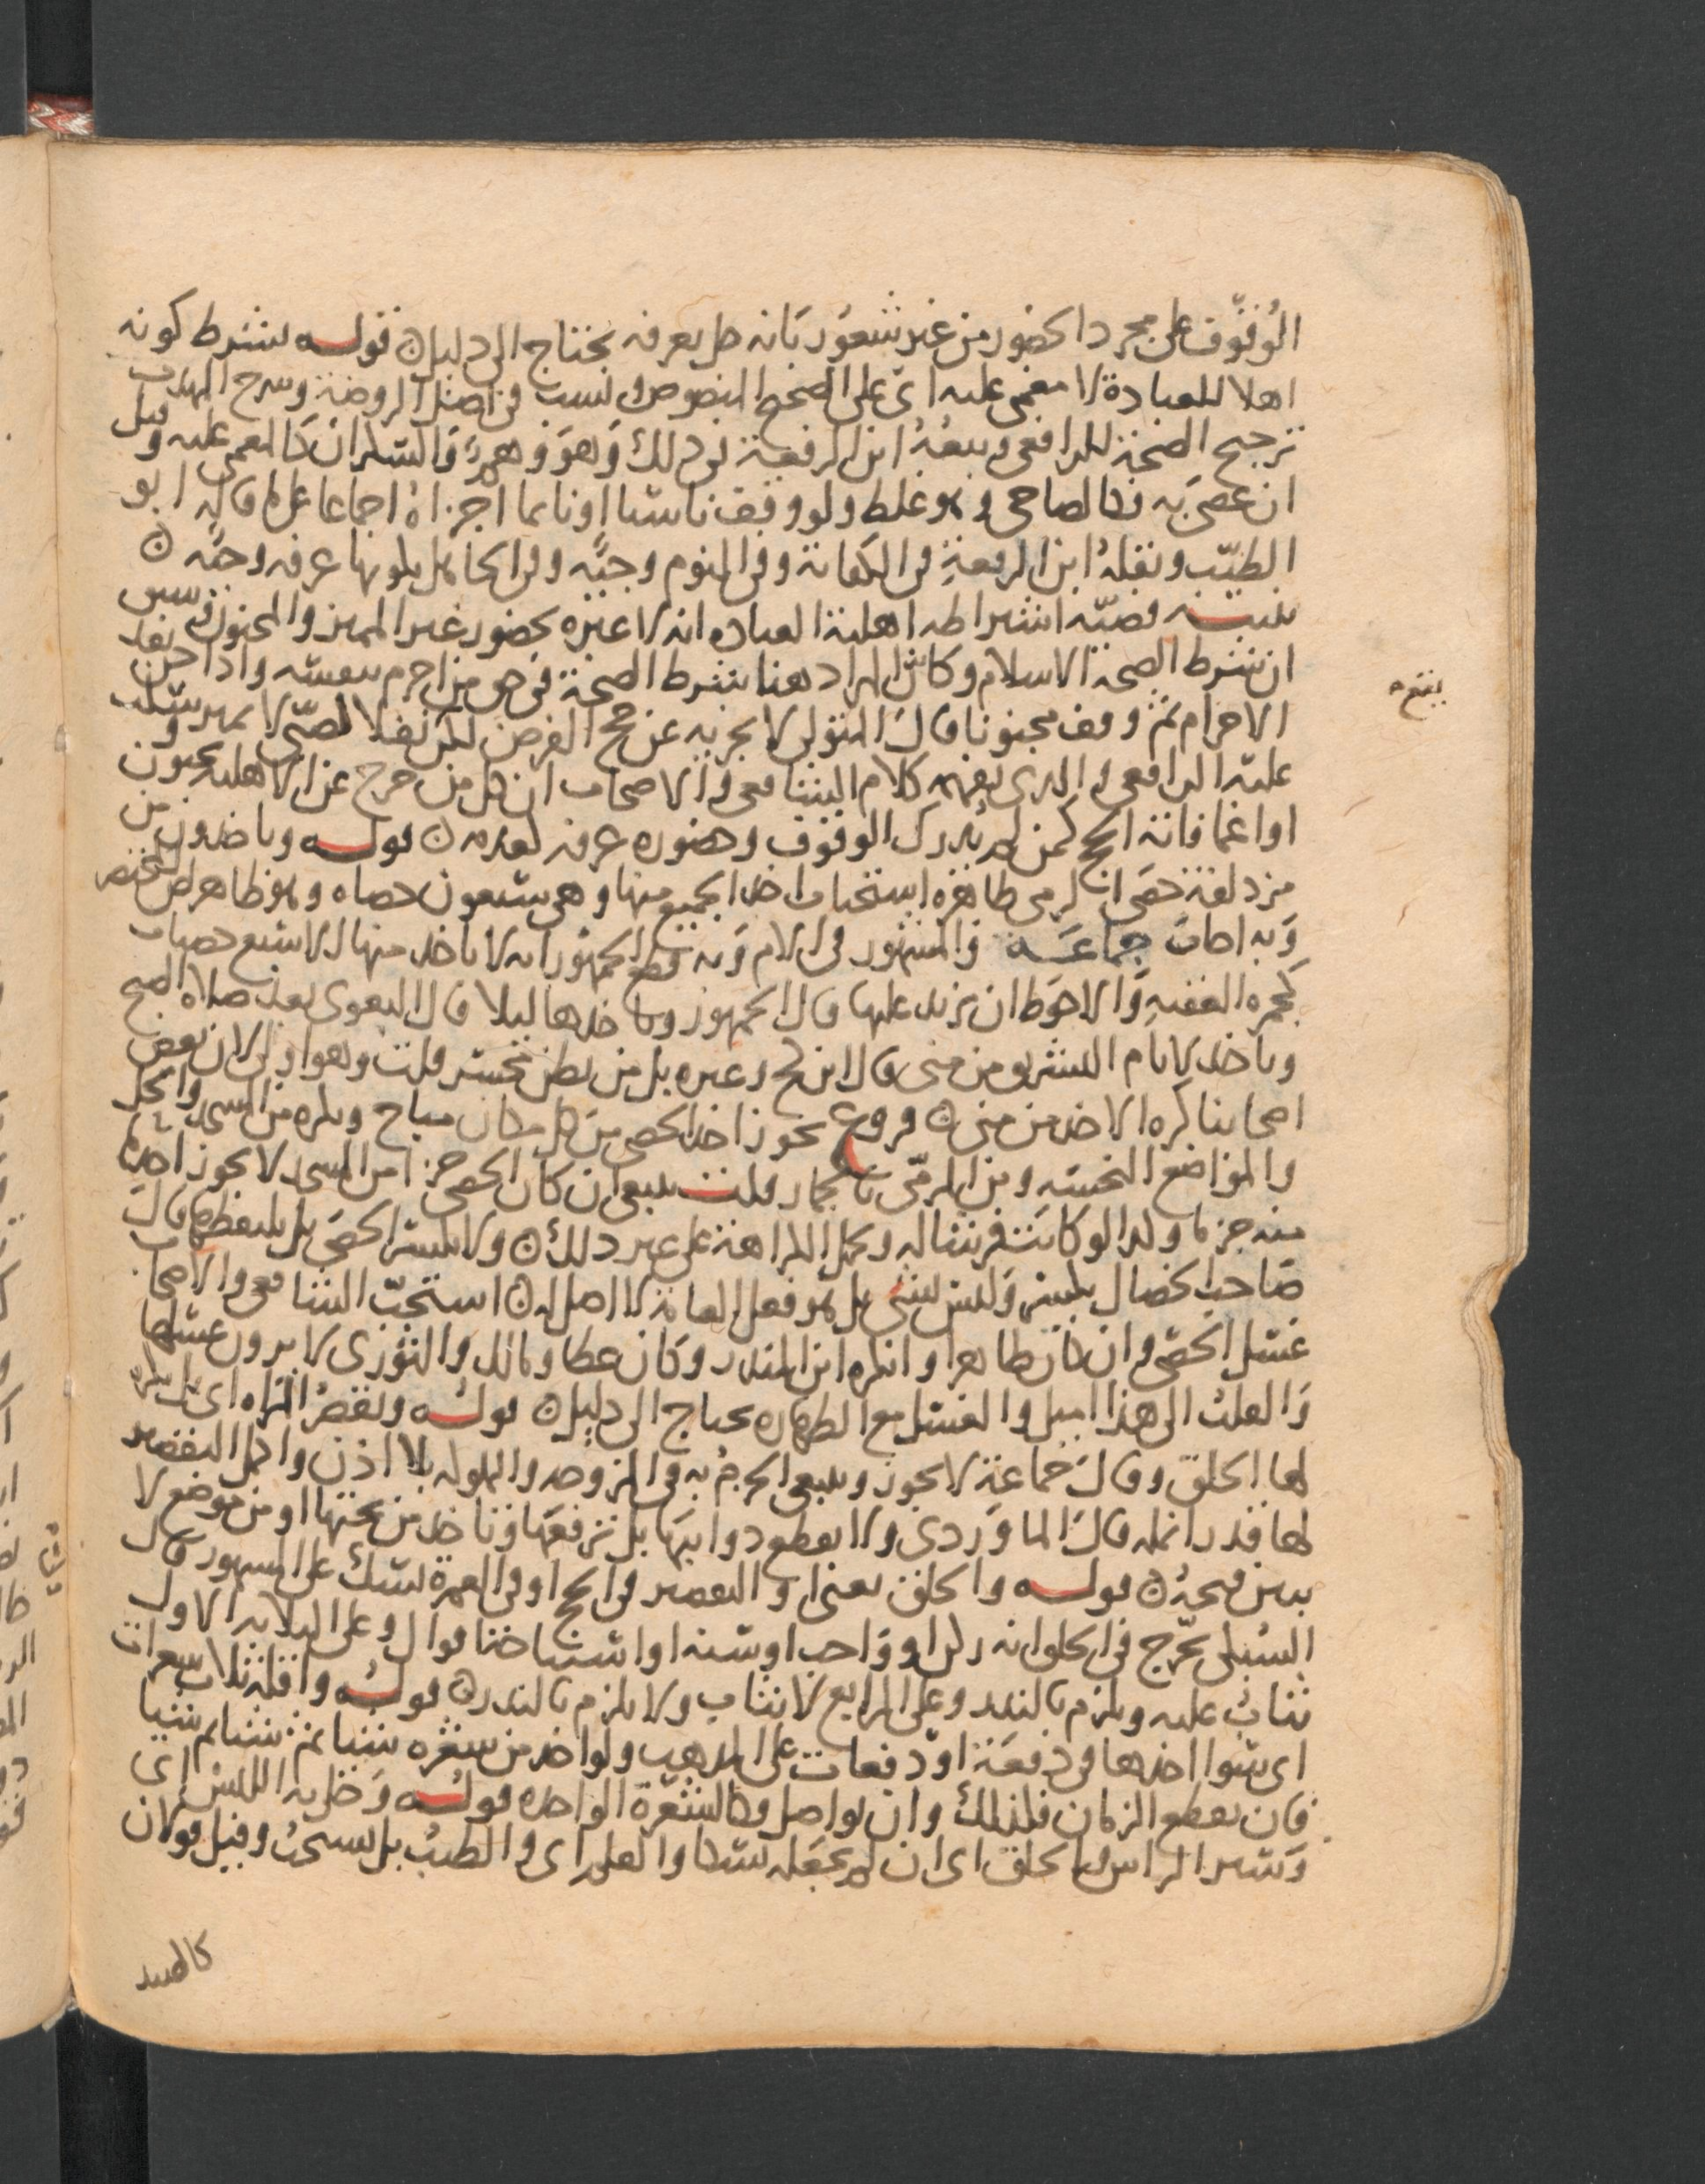 الوقوف على مجرد الحضور من غير شعور بانه حل بعرفه يحتاج الى دليل ن قوله بشرط كونه
اهلا للعبادة لا مغمى عليه اي على الصحيح المنصوص ونسب في اصل الروضة وشرح المهذب
ترجيح الصحة للرافعي وتبعه ابن الرفعة في ذلك وهو وهم والسكران كالمغمى عليه وقيل
ان عصى به فكالصاحي وهو غلط ولو وقف ناسيا او نايما اجزاه اجماعا على ما قاله ابو
الطيب ونقله ابن الرفعة في الكفاية وفي النوم وجه وفي الجاهل بكونها عرفه وجه ن
تنبيه قضية اشتراطه اهلية العباده انه لا عبره بحضور غير المميز والمجنون
ان شرط الصحة الاسلام وكان المراد هنا شرط الصحة في حق من احرم بنفسه واذا جن بعد
الاحرام ثم وقف مجنونا قال المتولي لا يجزيه عن حج الفرض لكن نفلا كصبي لا يميز وسكت
عليه الرافعي والذي يفهمه كلام الشافعي والاصحاب ان كل من خرج عن الاهليه بجنون
او اغما فاته الحج كمن لم يدرك الوقوف وحضوره عرفه كعدمه ن قوله وياخذون من
مزدلفة حصى الرمي ظاهره استحباب اخذ الجميع منها وهي سبعون حصاه وهو ظاهر نص المختصر
وبه اجاب جماعة والمشهور في الام وبه قطع الجمهور انه لا ياخذ منها الا سبع حصيات
لجمرة العقبه والاحوط ان يزيد عليها قال الجمهور وياخذها ليلا قال البغوي بعد صلاة الصبح
وياخذ لايام التشريق من منى قال ابن كج وغيره بل من بطن محسر قلت وهو اولى لان بعض
اصحابنا كره الاخذ من منى ن فروع يجوز اخذ الحصى من كل مكان مباح ويكره من المسجد والحل
والمواضع النجسه ومن المرمى بالجمار قلت ينبغي ان كان الحصى جزا من المسجد لا يجوز اخذه
منه جزما ولذا لو كانت فرشا له وتحمل الكراهة على غير ذلك ن ولا يكسر الحصى بل يلتقطها قال
صاحب الخصال يكسر وليس بشي بل هو فعل العامة لا اصل له ن استحب الشافعي والاصحاب
غسل الحصى وان كان طاهرا وانكره ابن المنذر وكان عطا ومالك والثوري لا يرون غسلها
والقلب الى هذا اميل والغسل مع الطهاره يحتاج الى دليل ن قوله وتقصر المراه اي بل يكره
لها الحلق وقال جماعة لا يجوز وينبغي الجزم به في المزوجه والمملوكه بلا اذن واقل التقصير
لها قدر انمله قال الماوردي ولا يقطع دوايبها بل ترفعها وتاخذ من تحتها او من موضع لا
يبين قبحه ن قوله والحلق يعني او التقصير في الحج او في العمرة نسك على المشهور قال
السبكي تخرج في الحلق انه ركن او واجب او سنه او استباحة اقوال وعلى الثلاثه الاول
يثاب عليه ويلزم بالنذر وعلى الرابع لا يثاب ولا يلزم بالنذر ن قوله واقله ثلاث شعرات
اي سوا اخذها في دفعة او دفعات على المذهب ولو اخذ من شعره شيا ثم شيا ثم شيا
فان تقطع الزمان فكذلك وان تواصل فكالشعرة الواحده قوله وحل به اللبس اي
وستر الراس والحلق اي ان لم نجعله نسكا والقلم اي والطيب بل يستحب وقيل قولان
كالصيد